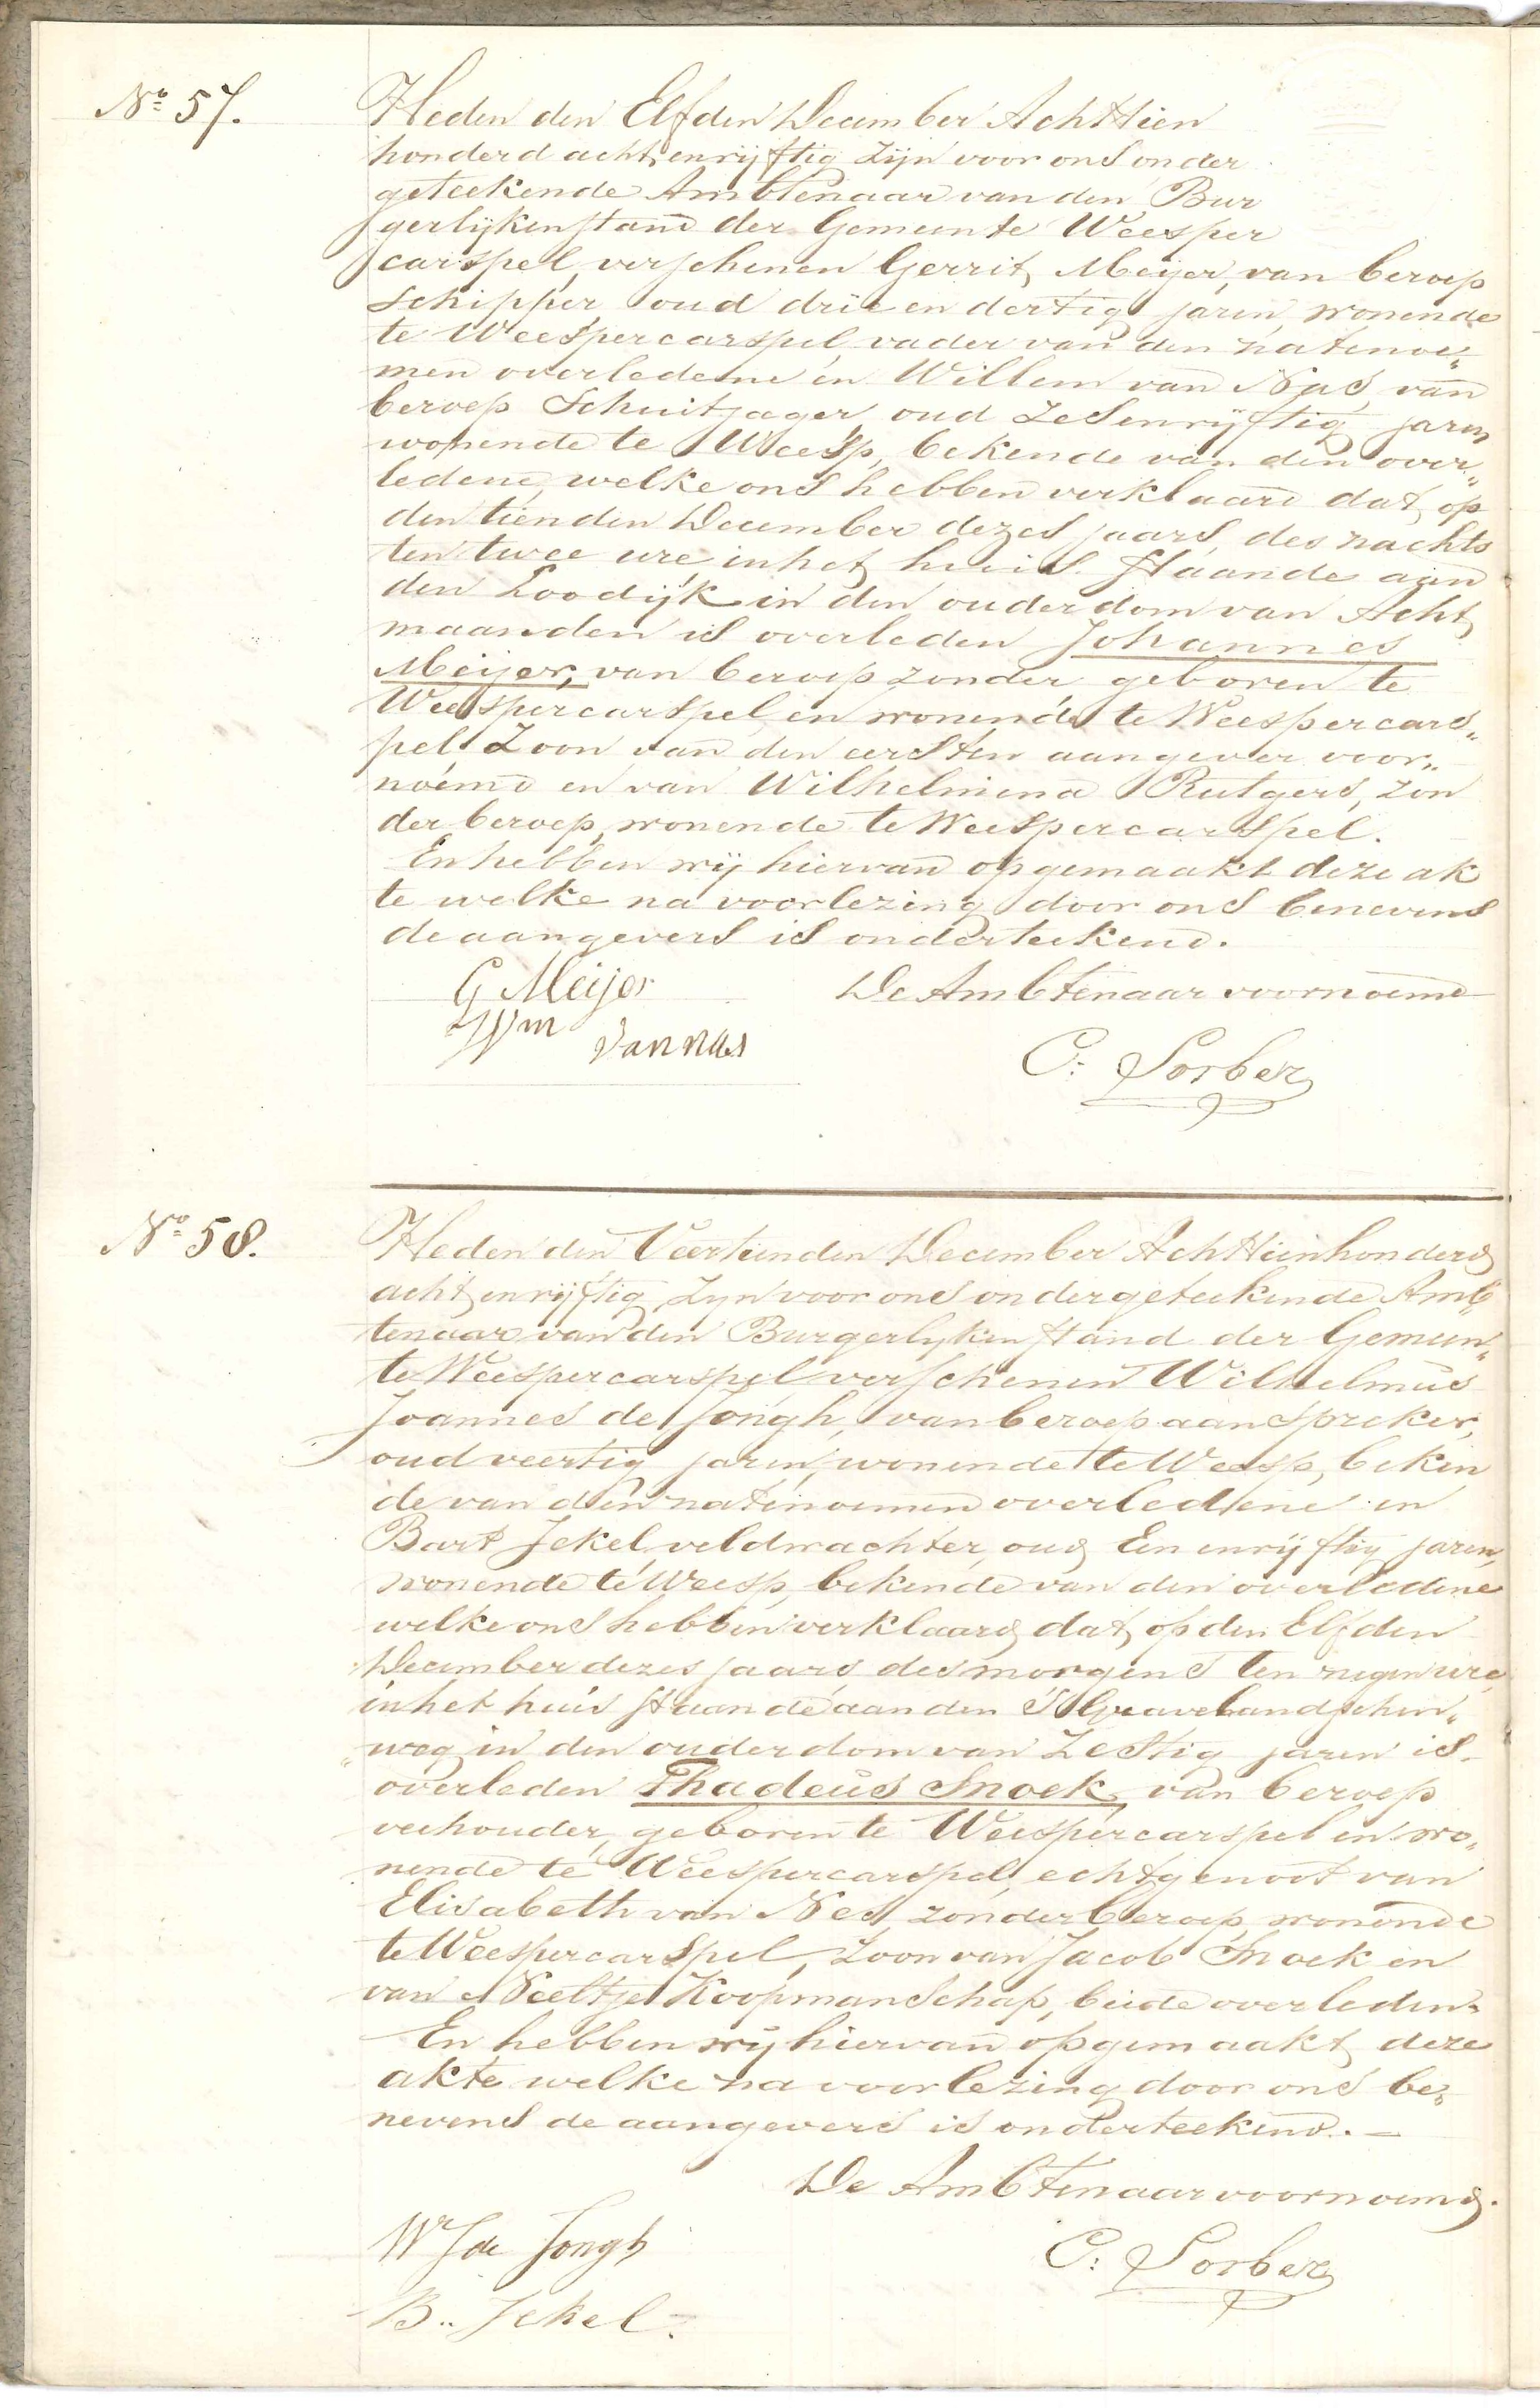 No 57.
Heden den Elfden December Achttien
honderd acht en vijftig zijn voor ons onder
geteekende Ambtenaar van den Bur
gerlijken stand der Gemeente Weesper
carspel, verschenen Gerrit Meijer, van beroep
Schipper, oud drie en dertig jaren, wonende
te Weespercarspel, vader van den natenoe„
men overledene en Willem van Nas, van
beroep Schuitjager, oud Zes en vijftig jaren
wonende te Weesp, bekende van den over„
ledene, welke ons hebben verklaard dat op
den tienden December dezes jaars, des nachts
ten twee ure in het huis staande aan
den Loodijk in den ouderdom van Acht
maanden is overleden Johannes
Meijer, van beroep zonder, geboren te
Weespercarspel, en wonende te Weespercars„
pel, Zoon van den eersten aangever voor„
noemd en van Wilhelmina Rutgers, zon
der beroep, wonende te Weespercarspel.
En hebben wij hiervan opgemaakt deze ak
te welke na voorlezing door ons benevens
de aangevers is onderteekend.
De Ambtenaar voornoemd
G Meijer
Wm van nas
C: Sorber
No 58.
Heden den Veertienden December Achttienhonderd
acht en vijftig, Zyn voor ons ondergeteekende Amb„
tenaar van den Burgerlyken stand der Gemeen„
te Weespercarspel, verschenen Wilhelmus
Joannes de Jongh, van beroep aanspreker,
oud veertig jaren, wonende te Weesp, beken
de van den natenoemen overledene en
Bart Jekel, veldwachter, oud Een en vijftig jaren,
wonende te Weesp, bekende van den overledene
welke ons hebben verklaard dat op den Elfden
December dezes jaars, des morgens ten negen ure,
in het huis staande aan den S Gravelandschen„
„weg in den ouderdom van Zestig jaren is
overleden Thadeus Snoek, van beroep
veehouder, geboren te Weespercarspel en wo„
nende te Weespercarspel, echtgenoot van
Elisabeth van Nes, zonder beroep, wonende
te Weespercarspel, Zoon van Jacob Snoek en
van Neeltje Koopmanschap, beide overleden.
En hebben wij hiervan opgemaakt deze
akte welke na voorlezing door ons be„
nevens de aangevers is onderteekend. —
De Ambtenaar voornoemd.
W J de Jongh
C: Sorber
B.. Jekel.